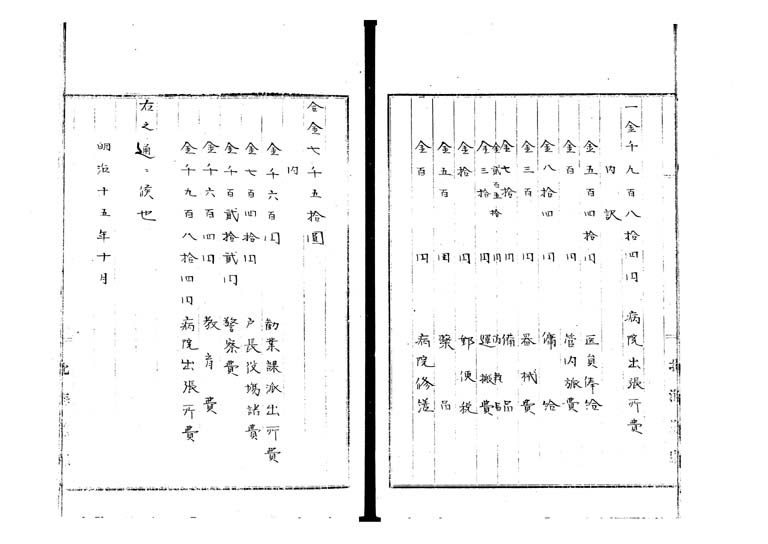 一金千九百八拾四円 病院出張所費
内訳
金五百四拾円 医員俸給
金百円 管内旅費
金八拾四円 傭給
金三百円 器械費
金七拾円 備品
金貳百五拾円 消耗品
金三拾円 運搬費
金拾円 郵便税
金五百円 薬品
金百円 病院修繕
合金七千五拾圓
内
金千六百円 勧業課派出所費
金七百四拾円 戸長役場諸費
金千百貳拾貳円 警察費
金千六百四円 教育費
金千九百八拾四円 病院出張所費
右之通ニ候也
明治十五年十月